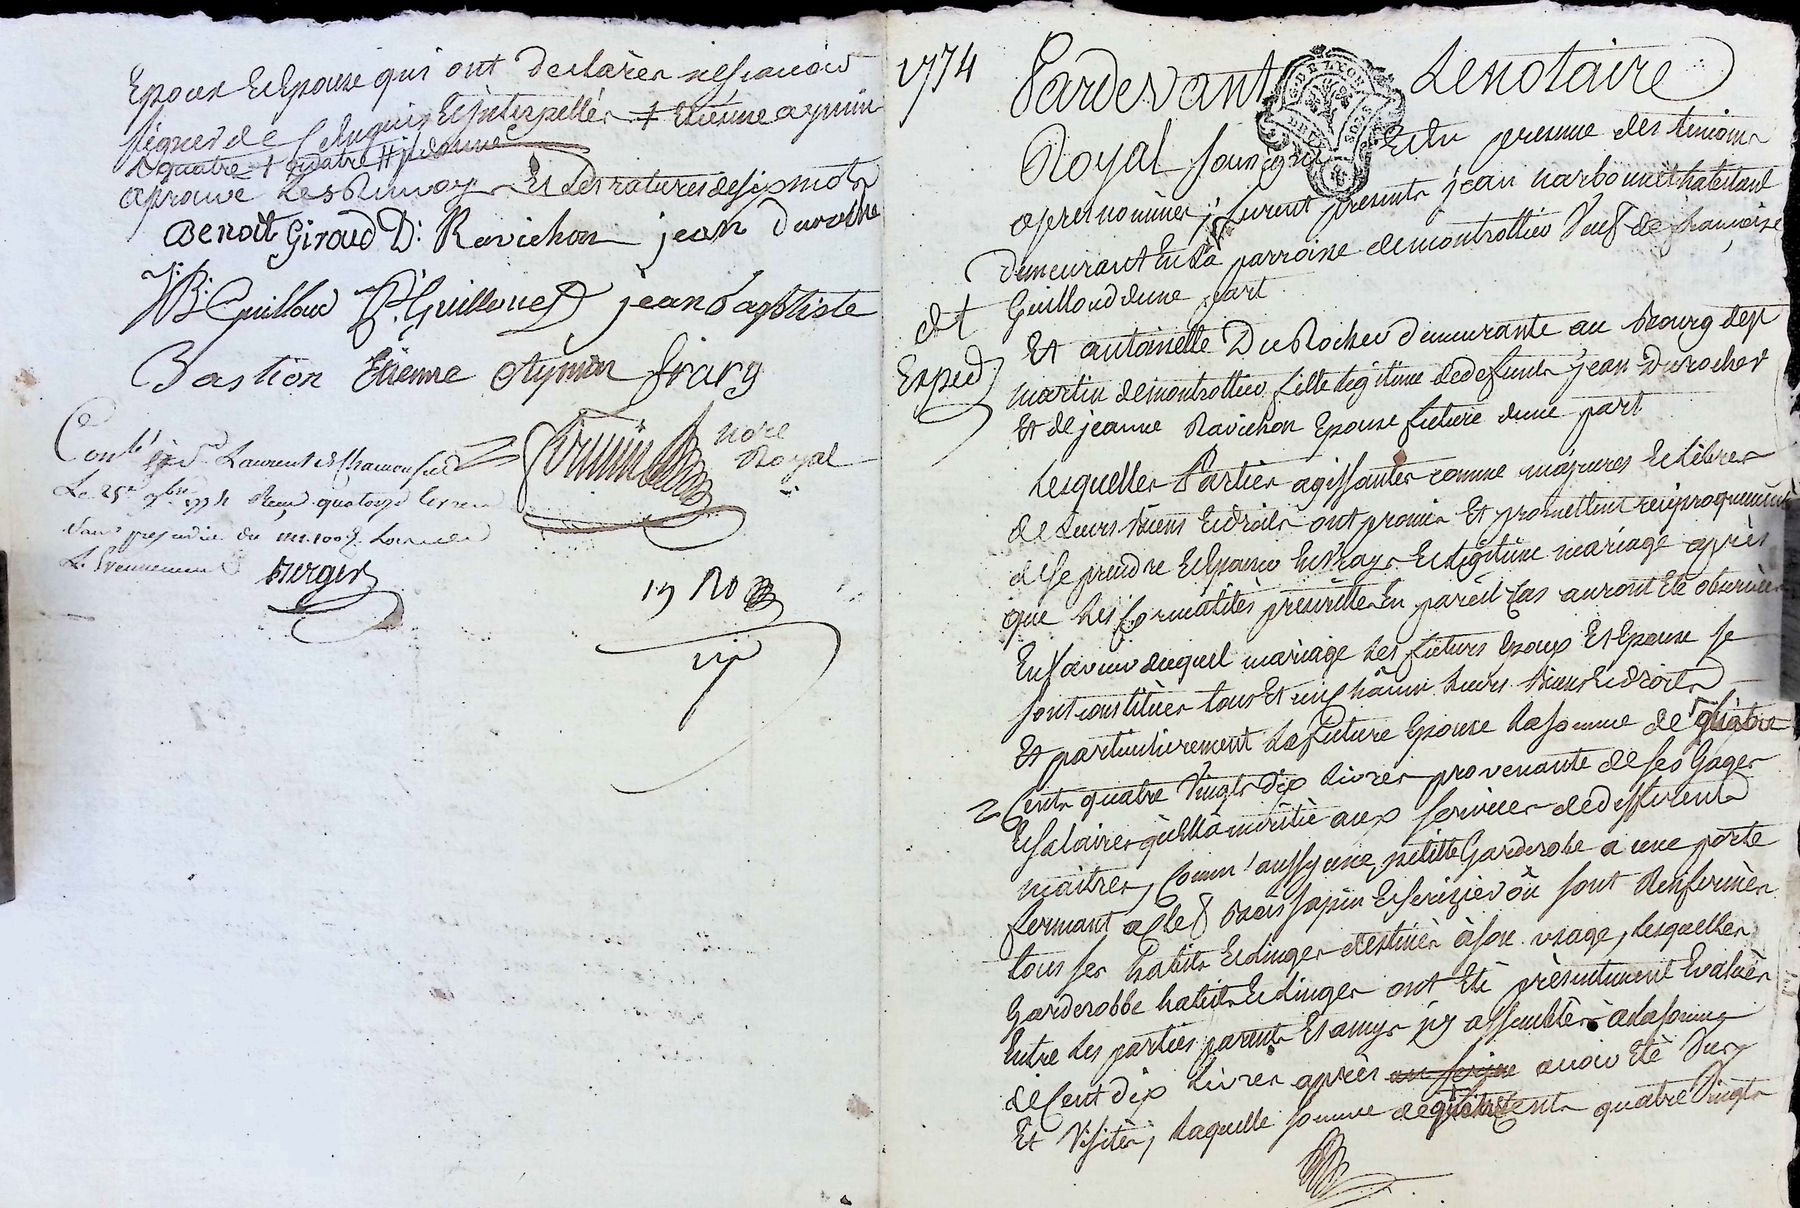 Epoux Et Epouse qui ont declarés ne scavoir
signer de ce Enquis Et interpellés + Etienne aymin
+ quatre + quatre # donné
aprouvé Les Renvoys Et Les ratures de six mots
Benoît Giraud D: Ravichon jean duroché
JB: Guilloud P: Guilloud jean baptiste
Bastion Etienne Aymin frary
nore
Royal
Conlé à St Laurent de Chamousset
Le 25e 9bre 1774 Reçu quatorze livres
sans prejudice du
Berger
19 Ro
1774
Pardevant Le notaire
G. DE LYON
Royal soussigné Et En presence des temoins
apres nommés furent presents jean narbonnet habitant
demeurant En La parroisse de montrottier Veuf de françoise
Guilloud dune part
d t
Exped
Et antoinette Du Rocher demeurante au Bourg de st
martin de montrottier fille legitime de defunts jean Durocher
Et de jeanne Ravichon Epouse future dune part
Lesquelles Parties agissantes comme majeures Et Libres
de Leurs biens Et droits ont promis Et promettent reciproquement
de se prendre Et Epouser En Vray Et Legitime mariage après
que Les formalités prescrittes En pareil Cas auront Eté observées
En faveur duquel mariage Les futurs Epoux Et Epouse se
sont constitués tous Et un châcun Leurs biens Et droits
Et particulierement La future Epouse La somme de quatre
Cents quatre Vingts dix Livres provenante de ses Gages
Et salaires qu'Ella mérité aux services de differends
maitres, Comm'aussy une petitte Garderobe a une porte
fermant a clef bois sapin Et serizier où sont Renfermés
tous ses habits Et Linges destinés à son usage, Lesquelles
Garderobbe habits Et Linges ont Eté présentement Evalués
Entre Les parties parents Et amys jcy assemblés à La somme
de Cent dix Livres après avoir Eté Vus
Et Visités, Laquelle somme de quatre Cents quatre Vingts